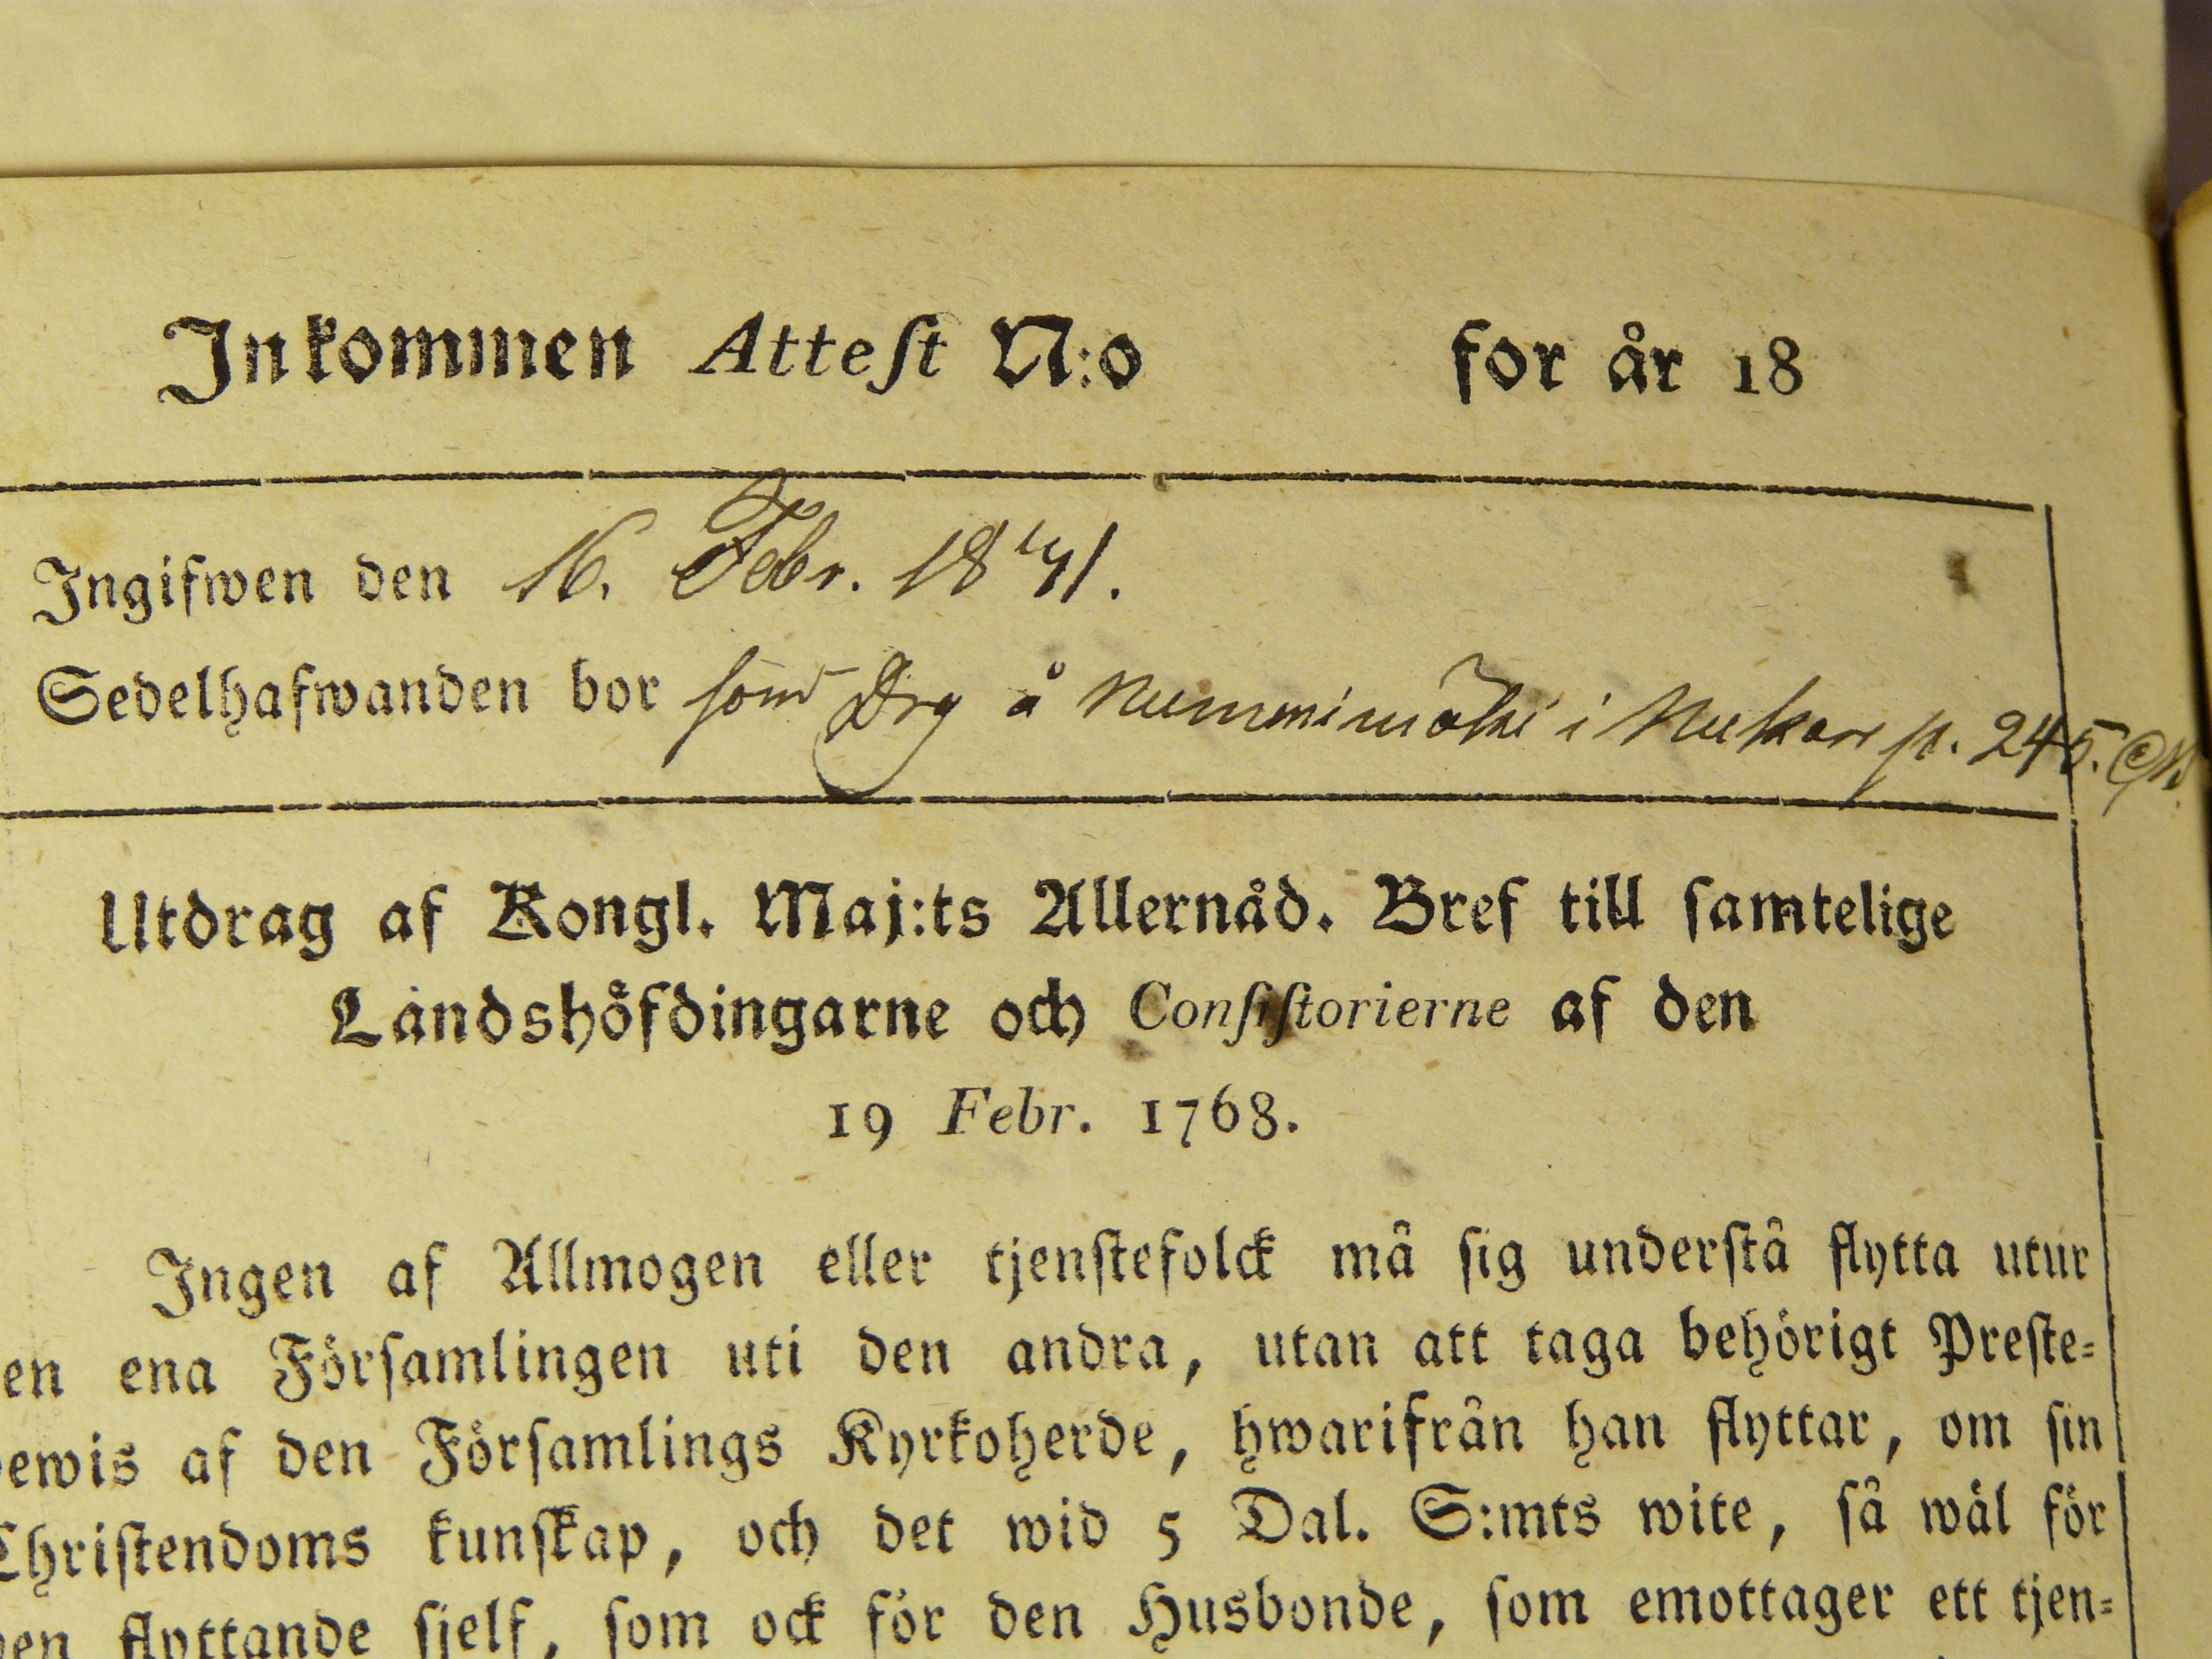 Inkommen Atteſt N:o for år 18
Ingifwen den 16. Febr. 1841.
Sedelhafwanden bor som Drg å Nummimäki i p. 245.
Utdrag af Kongl. Maj:ts Allernåd. Bref till ſamtelige
Landshöfdingarne och Conſiſtorierne af den
19 Febr. 1768.
Ingen af Allmogen eller tjenſtefolck må ſig underſtå flytta utur
en ena Förſamlingen uti den andra, utan att taga behörigt Preſte-
ewis af den Förſamlings Kyrkoherde, hwarifrån han flyttar, om ſin
Chriſtendoms kunſkap, och det wid 5 Dal. S:mts wite, ſå wäl för
en flyttande ſjelf, ſom ock för den Husbonde, ſom emottager ett tjen-